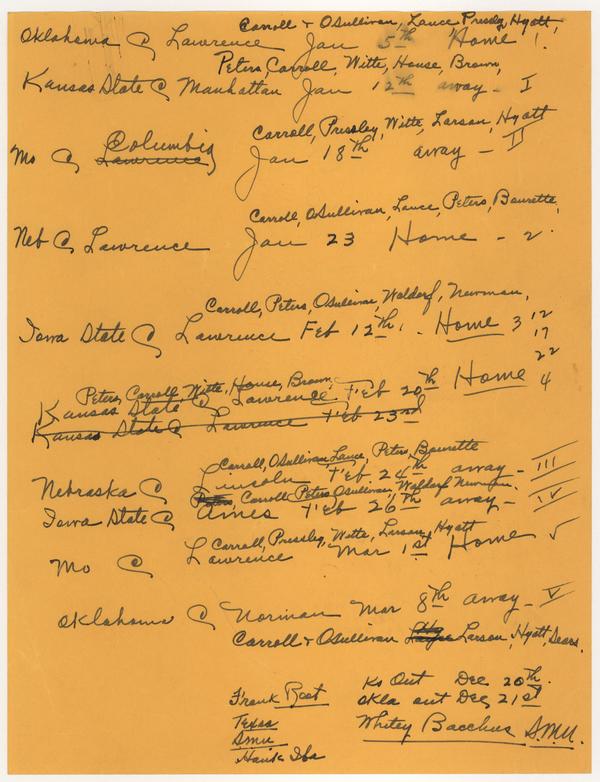 Carroll + OSullivan, Lance Pressley, Hyatt,
Oklahoma @ Lawrence Jan 5th Home 1.
Peters, Carroll, Witte, House, Brown,
Kansas State @ Manhattan Jan 12th away - I
Carroll, Pressley, Witte, Larson, Hyatt
Columbia
Mo @ Lawrence Jan 18th away - II
Carroll, OSullivan, Lance, Peters, Baurette,
Neb @ Lawrence Jan 23 Home - 2.
Carroll, Peters, OSullivan, Waldorf, Newman,
Iowa State @ Lawrence Feb 12th. Home 3 12
17
22
Peters, Carroll, Witte, House, Brown,
Kansas State @ Lawrence Feb 20th Home 4
Kansas State @ Lawrence Feb 23rd
Carroll, OSullivan Lance, Peters, Baurette
Nebraska @ Lincoln Feb 24th away - III
Peters, Carroll Peters OSullivan, Waldorf Newman.
Iowa State @ Ames Feb 26th away - IV
Carroll, Pressley, Witte, Larson, Hyatt
Mo @ Lawrence Mar 1st Home 5
Oklahoma @ Norman Mar 8th away - V
Carroll + OSullivan Larson, Hyatt, Sears.
Ks Out Dec 20th.
Frank Root Okla out Dec 21st
Texas Whitey Bacchus S.M.U.
SMU
Hank Iba